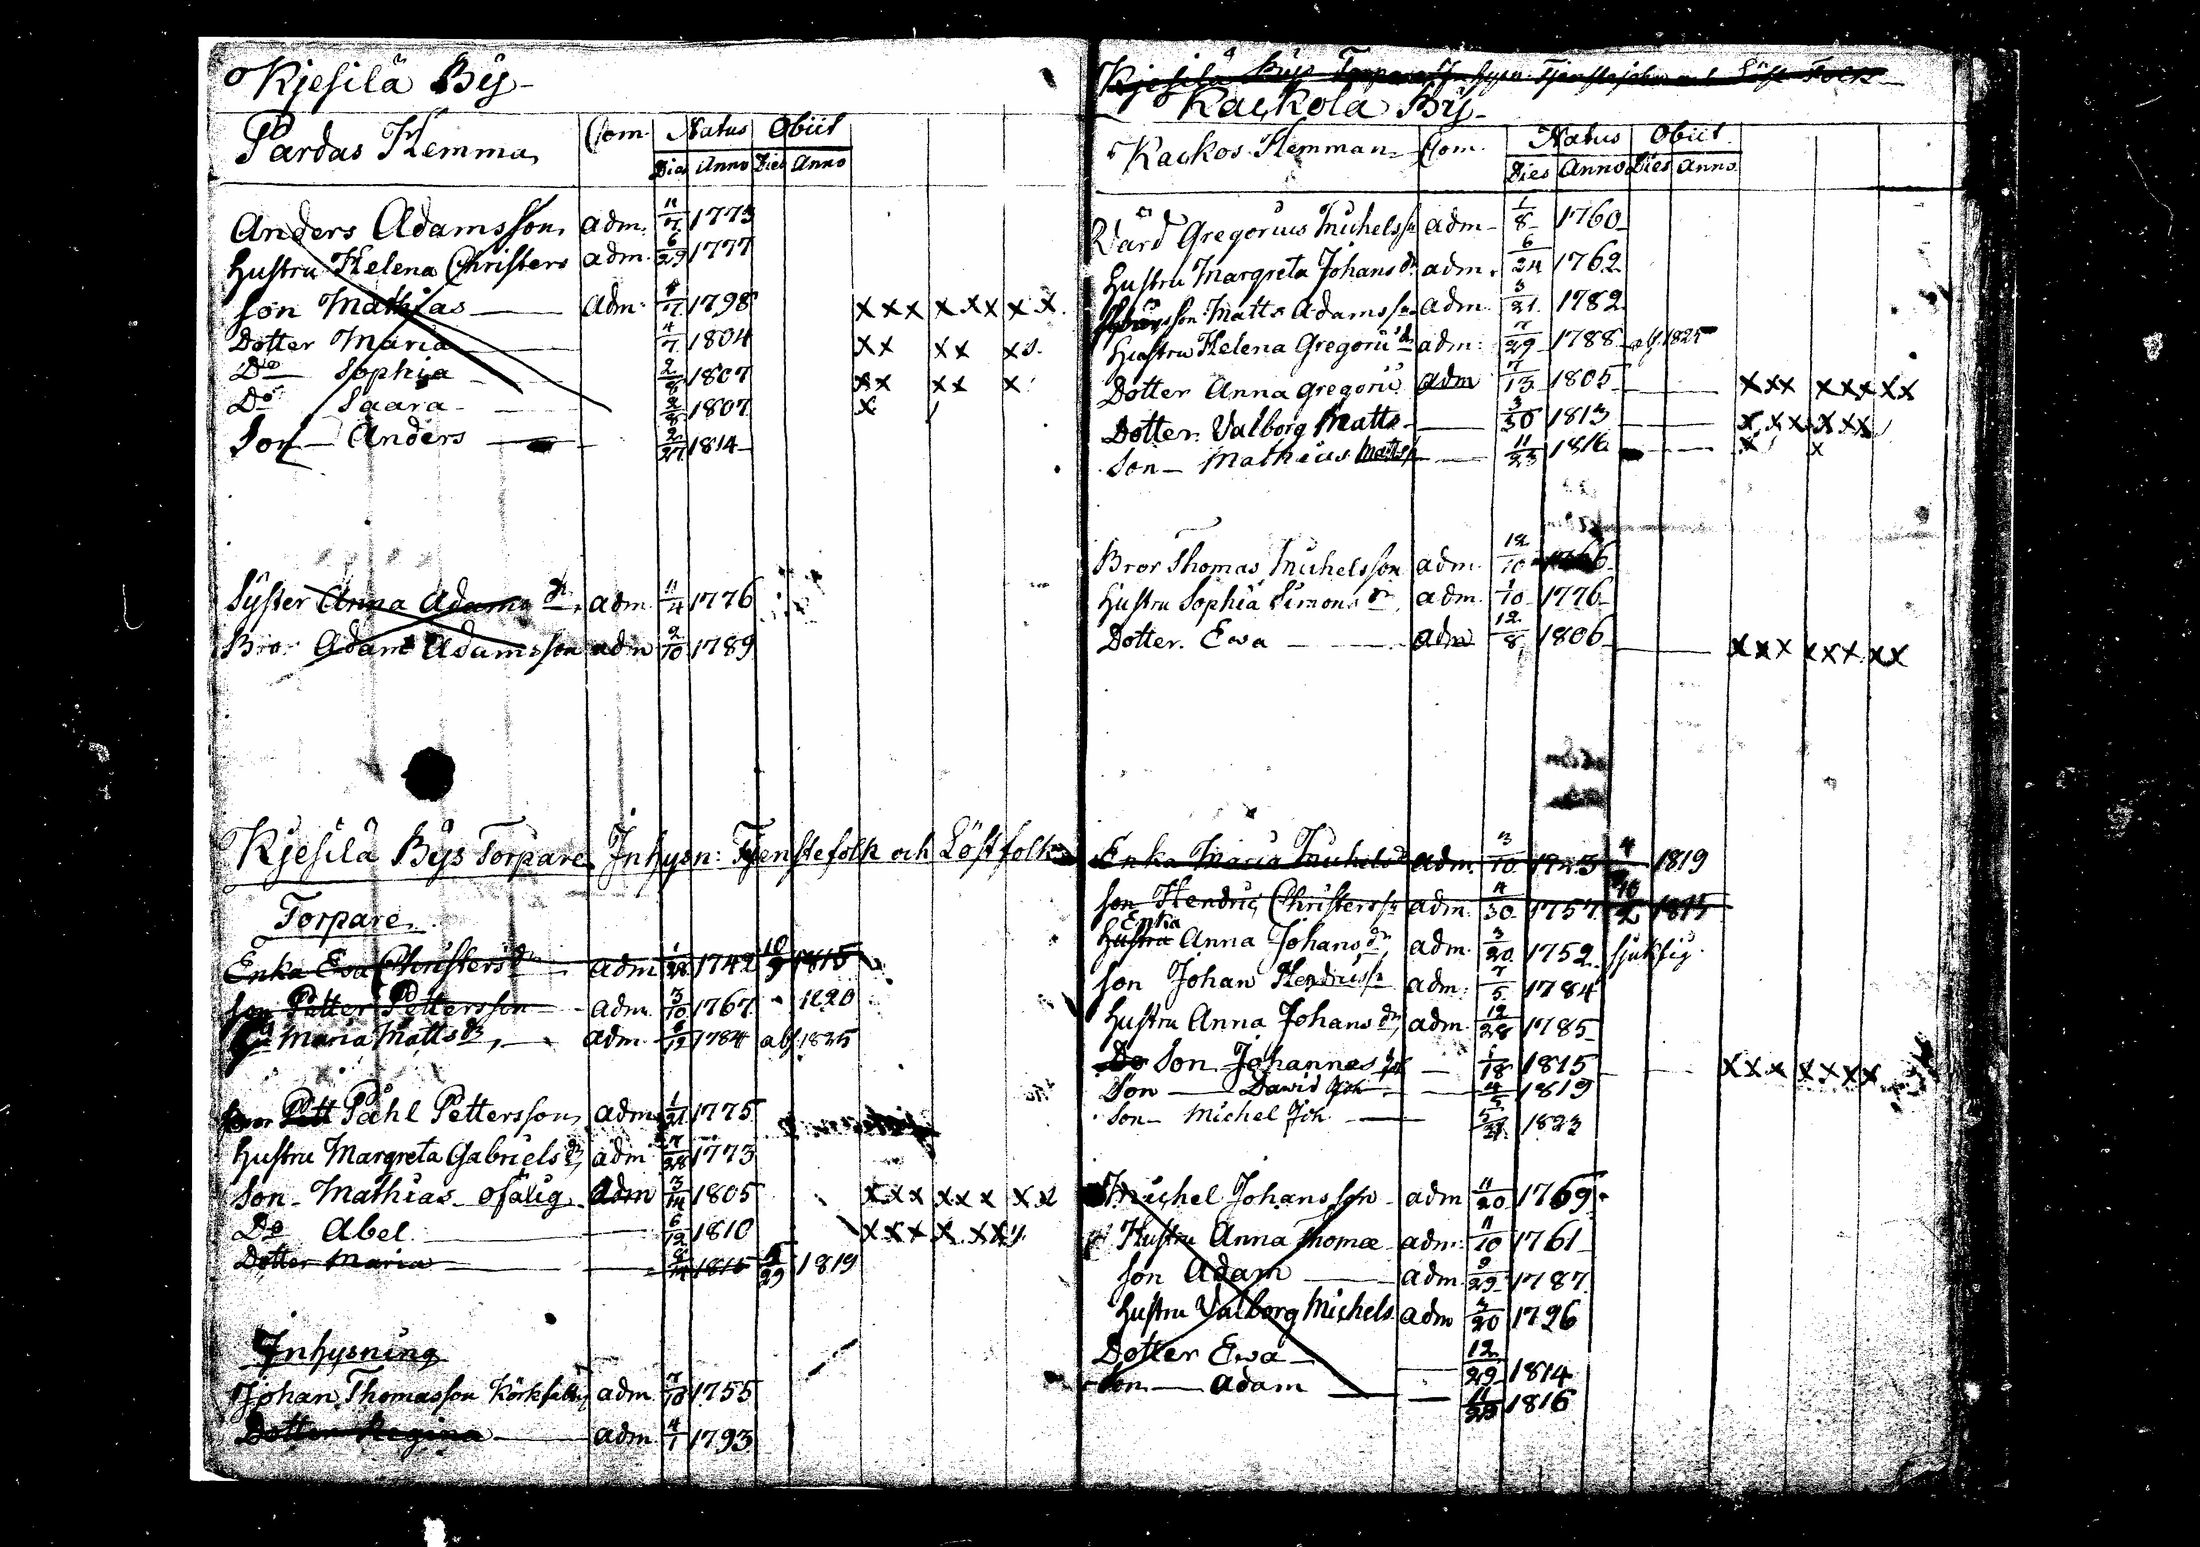 Kjesilä Bÿ
Pardas Hemma
Com
Natus
Obiit
Dies Anno Dies Anno
Anders Adamsson adm. 11/7 1773
Hustru Helena Christers adm. 6/29 1777
Son Mathias adm. 1798 xxx xxx xx
Dotter Maria 4/7 1804 xx xx
Do Sophia 2/8 1807 xx xx x
Do Saara 2/8 1807 x
Son Anders 2/27 1814
Syster Anna Adams dr adm 11/4 1776
Bror Adam Adamsson adm 2/10 1789
Kjesilä Bÿs Torpare Inhysn: Tjenstefolk och Löst folk
Torpare
Enka Eva Christersdr adm 1/28 1742 1815
Son Petter Pettersson adm 3/10 1767 1820
Maria Matts dr adm 1784 abs 1825
Påhl Pettersson adm 1/21 1775
Hustru Margreta Gabriels dr adm 7/28 1773
Son Mathias ofälig adm 3/14 1805 xxx xxx xx
Do Abel 6/12 1810 xxx x xx
Dotter Maria 1815 1819
Inhysning
Johan Thomasson adm 7/10 1755
Dotter Regina adm. 4/1 1793
Kjesilä Bÿs
Kackola Bÿ
Kackos Hemman Com.
Natus
Obiit
Dies Anno Dies Anno
Värd Gregorius Michelss adm 1/8 1760
Hustru Margreta Johans dr adm. 6/24 1762
Matts Adamss adm 3/21 1782
Hustru Helena Gregorii dr adm: 7/29 1788 1825
Dotter Anna Gregorii adm 7/13 1805 xxx xxx xx
Dotter Valborg Matts 3/30 1813 xxx xxx
Son Mathias Matts 11/23 1816 x x
Bror Thomas Michelsson adm. 12/10 1766
Hustru Sophia Simons dr adm. 1/10 1776
Dotter Ewa adm 12/8 1806 xxx xxx xx
Enka Maria Michels dr adm. 3/10 1819
Son Hendric Christerss adm. 11/30 1757 1815
Enka
Hustru Anna Johans dr adm. 3/20 1752 sjuklig
Son Johan Hendricss adm: 7/5 1784
Hustru Anna Johans dr adm. 12/28 1785
Do Son Johannes 1/18 1815 xxx xxxx
Son David Joh 1819
Son Michel Joh 1823
Michel Johansson adm 11/20 1769
Hustru Anna Thomæ adm: 11/10 1761
Son Adam adm 9/29 1787
Hustru Valborg Michels adm 2/20 1796
Dotter Ewa 12/29 1814
Son Adam 1816